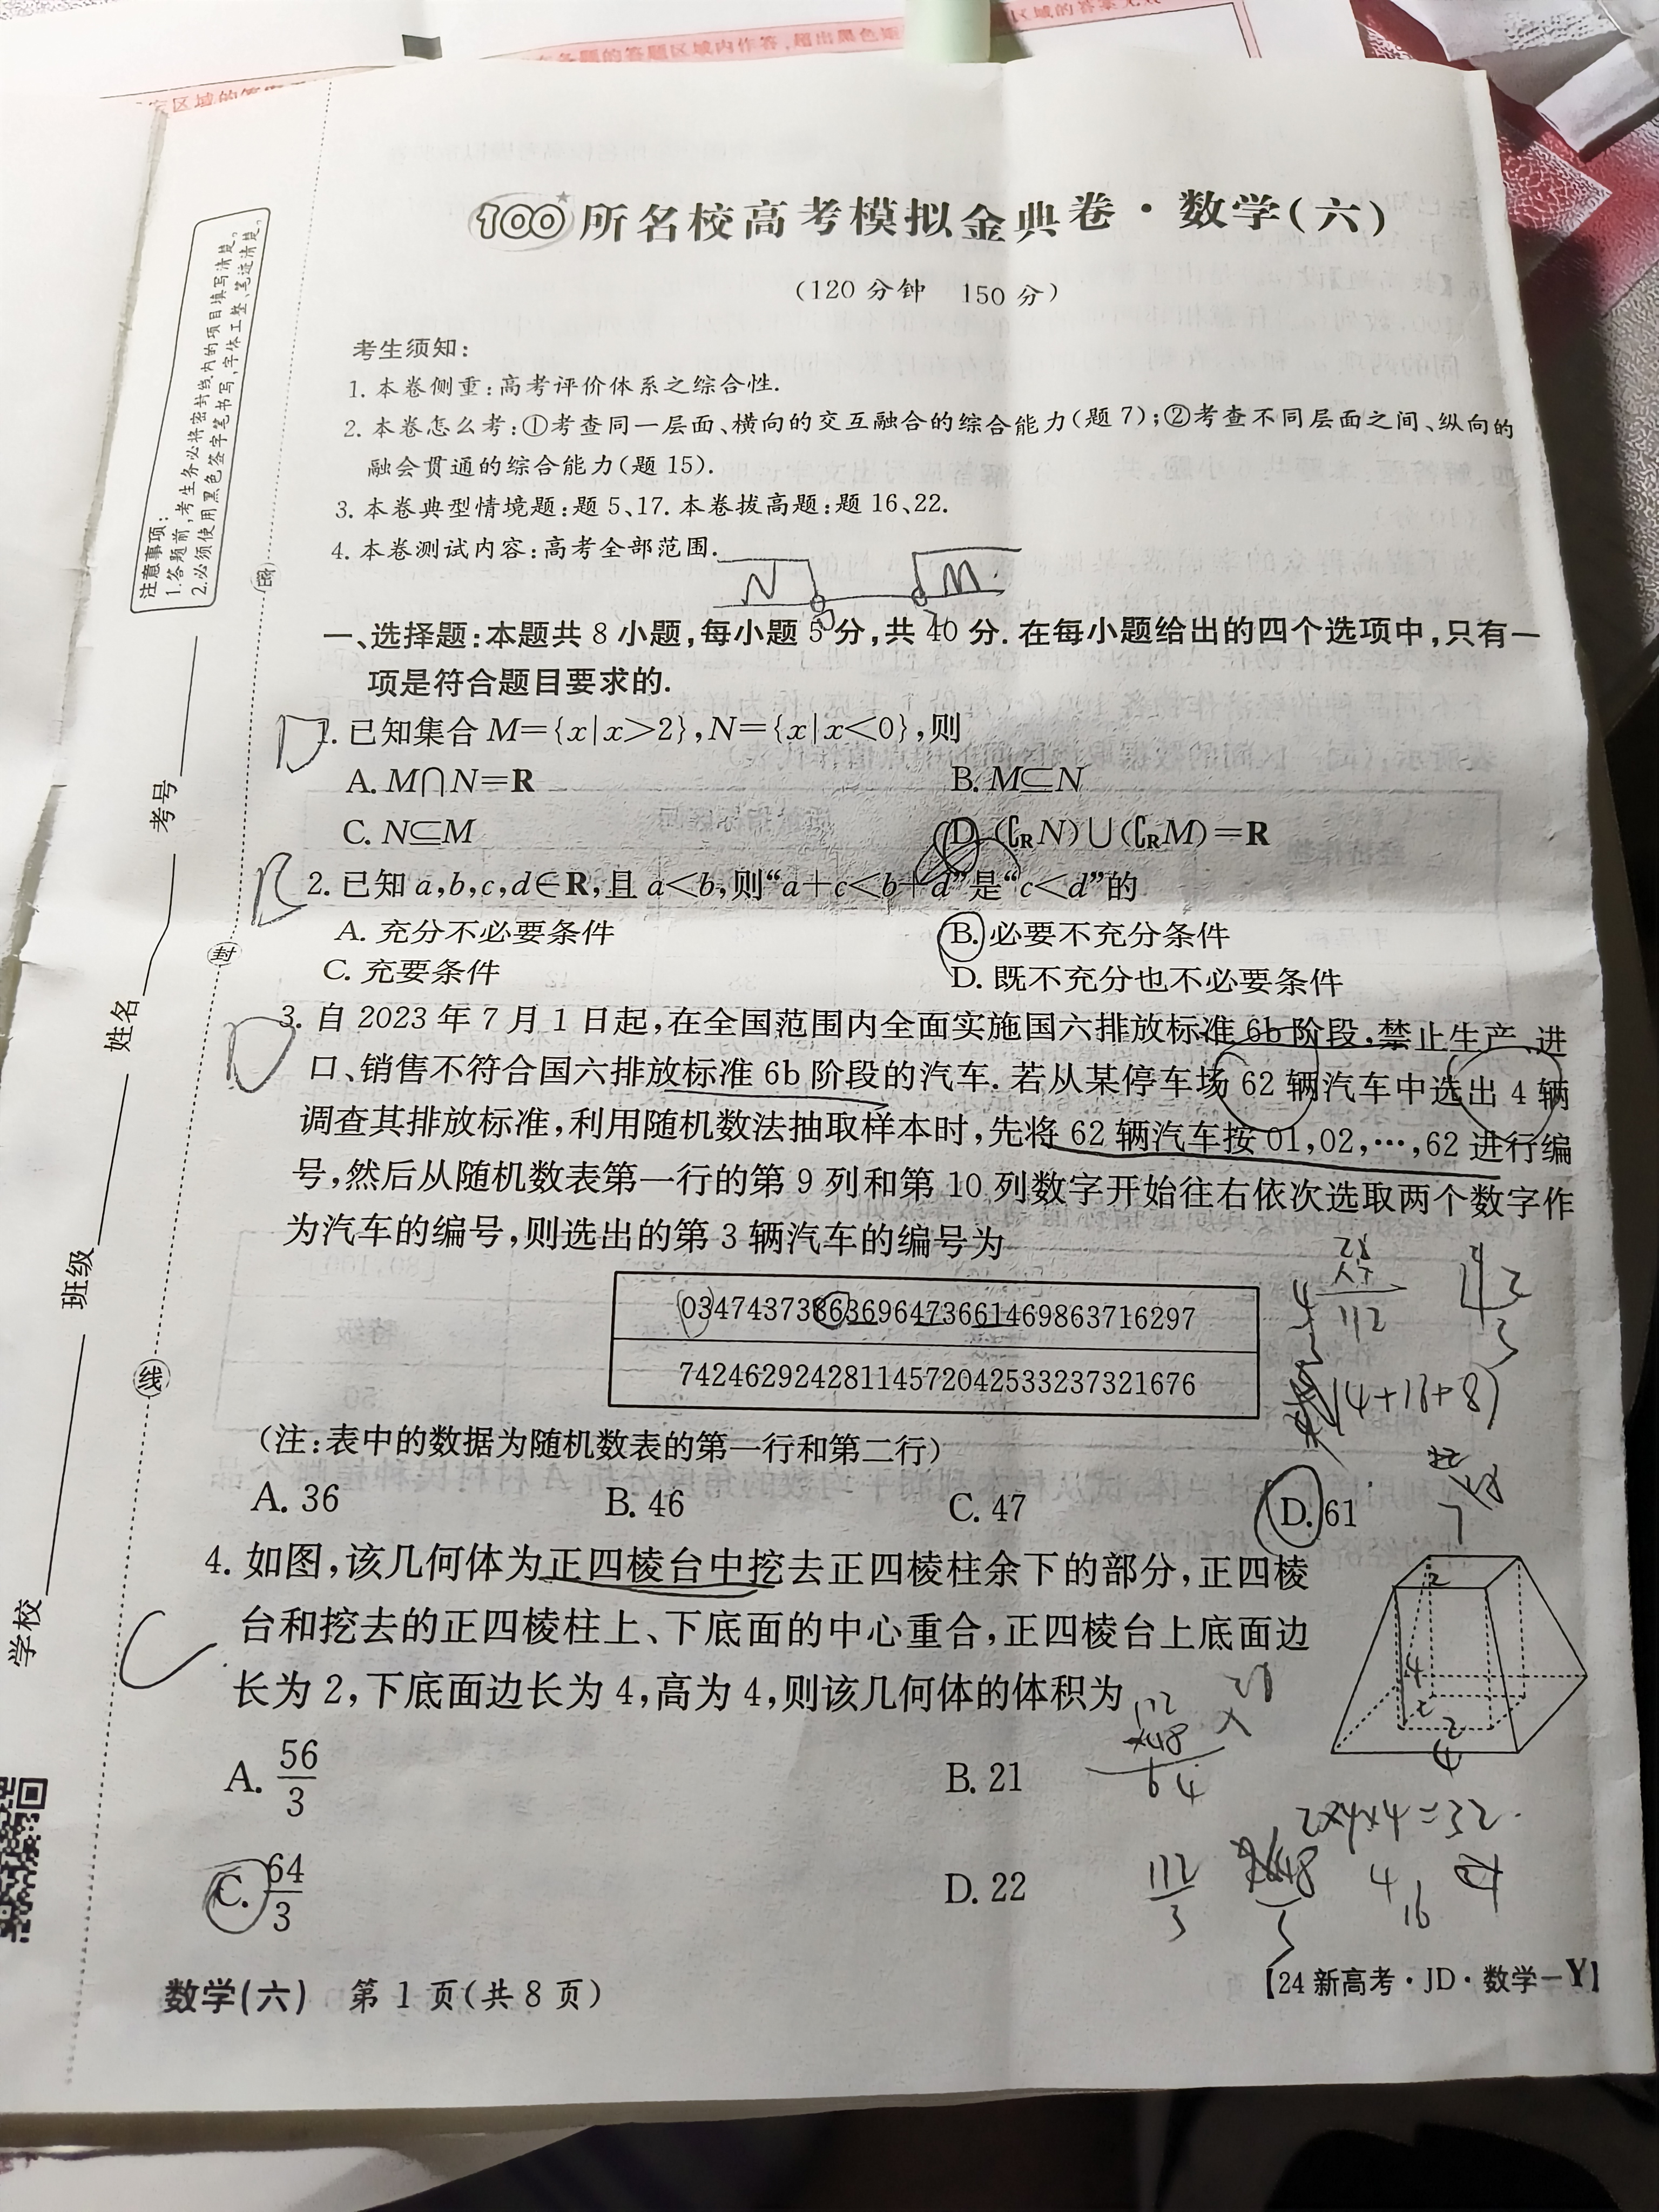 100所名校高考模拟金典卷·数学(六)
(120分钟 150分)
考生须知:
1.本卷侧重:高考评价体系之综合性.
2.本卷怎么考:①考查同一层面、横向的交互融合的综合能力(题7);②考查不同层面之间、纵向的
融会贯通的综合能力(题15).
3.本卷典型情境题:题5、17.本卷拔高题:题16、22.
4.本卷测试内容:高考全部范围.
N M
一、选择题:本题共8小题,每小题5分,共40分.在每小题给出的四个选项中,只有一
项是符合题目要求的.
1.已知集合M={x|x>2},N={x|x<0},则
A. M∩N=R B. M⊆N
C. N⊆M D. (∁RN)∪(∁RM)=R
2.已知a,b,c,d∈R,且a<b,则“a+c<b+d”是“c<d”的
A. 充分不必要条件 B. 必要不充分条件
C. 充要条件 D. 既不充分也不必要条件
3.自2023年7月1日起,在全国范围内全面实施国六排放标准6b阶段,禁止生产、进
口、销售不符合国六排放标准6b阶段的汽车.若从某停车场62辆汽车中选出4辆
调查其排放标准,利用随机数法抽取样本时,先将62辆汽车按01,02,…,62进行编
号,然后从随机数表第一行的第9列和第10列数字开始往右依次选取两个数字作
为汽车的编号,则选出的第3辆汽车的编号为
03474373863696473661469863716297
74246292428114572042533237321676
(注:表中的数据为随机数表的第一行和第二行)
A. 36 B. 46 C. 47 D. 61
112
(4+16+8)
4.如图,该几何体为正四棱台中挖去正四棱柱余下的部分,正四棱
台和挖去的正四棱柱上、下底面的中心重合,正四棱台上底面边
长为2,下底面边长为4,高为4,则该几何体的体积为
A. 56/3 B. 21
C. 64/3 D. 22
112
48
64
2×4×4=32
112/3
4
16
数学(六) 第1页(共8页)
【24新高考·JD·数学-Y】
注意事项:
1.答题前,考生务必将密封线内的项目填写清楚。
2.必须使用黑色签字笔书写,字体工整、笔迹清楚。
密
封
线
考号
姓名
班级
学校